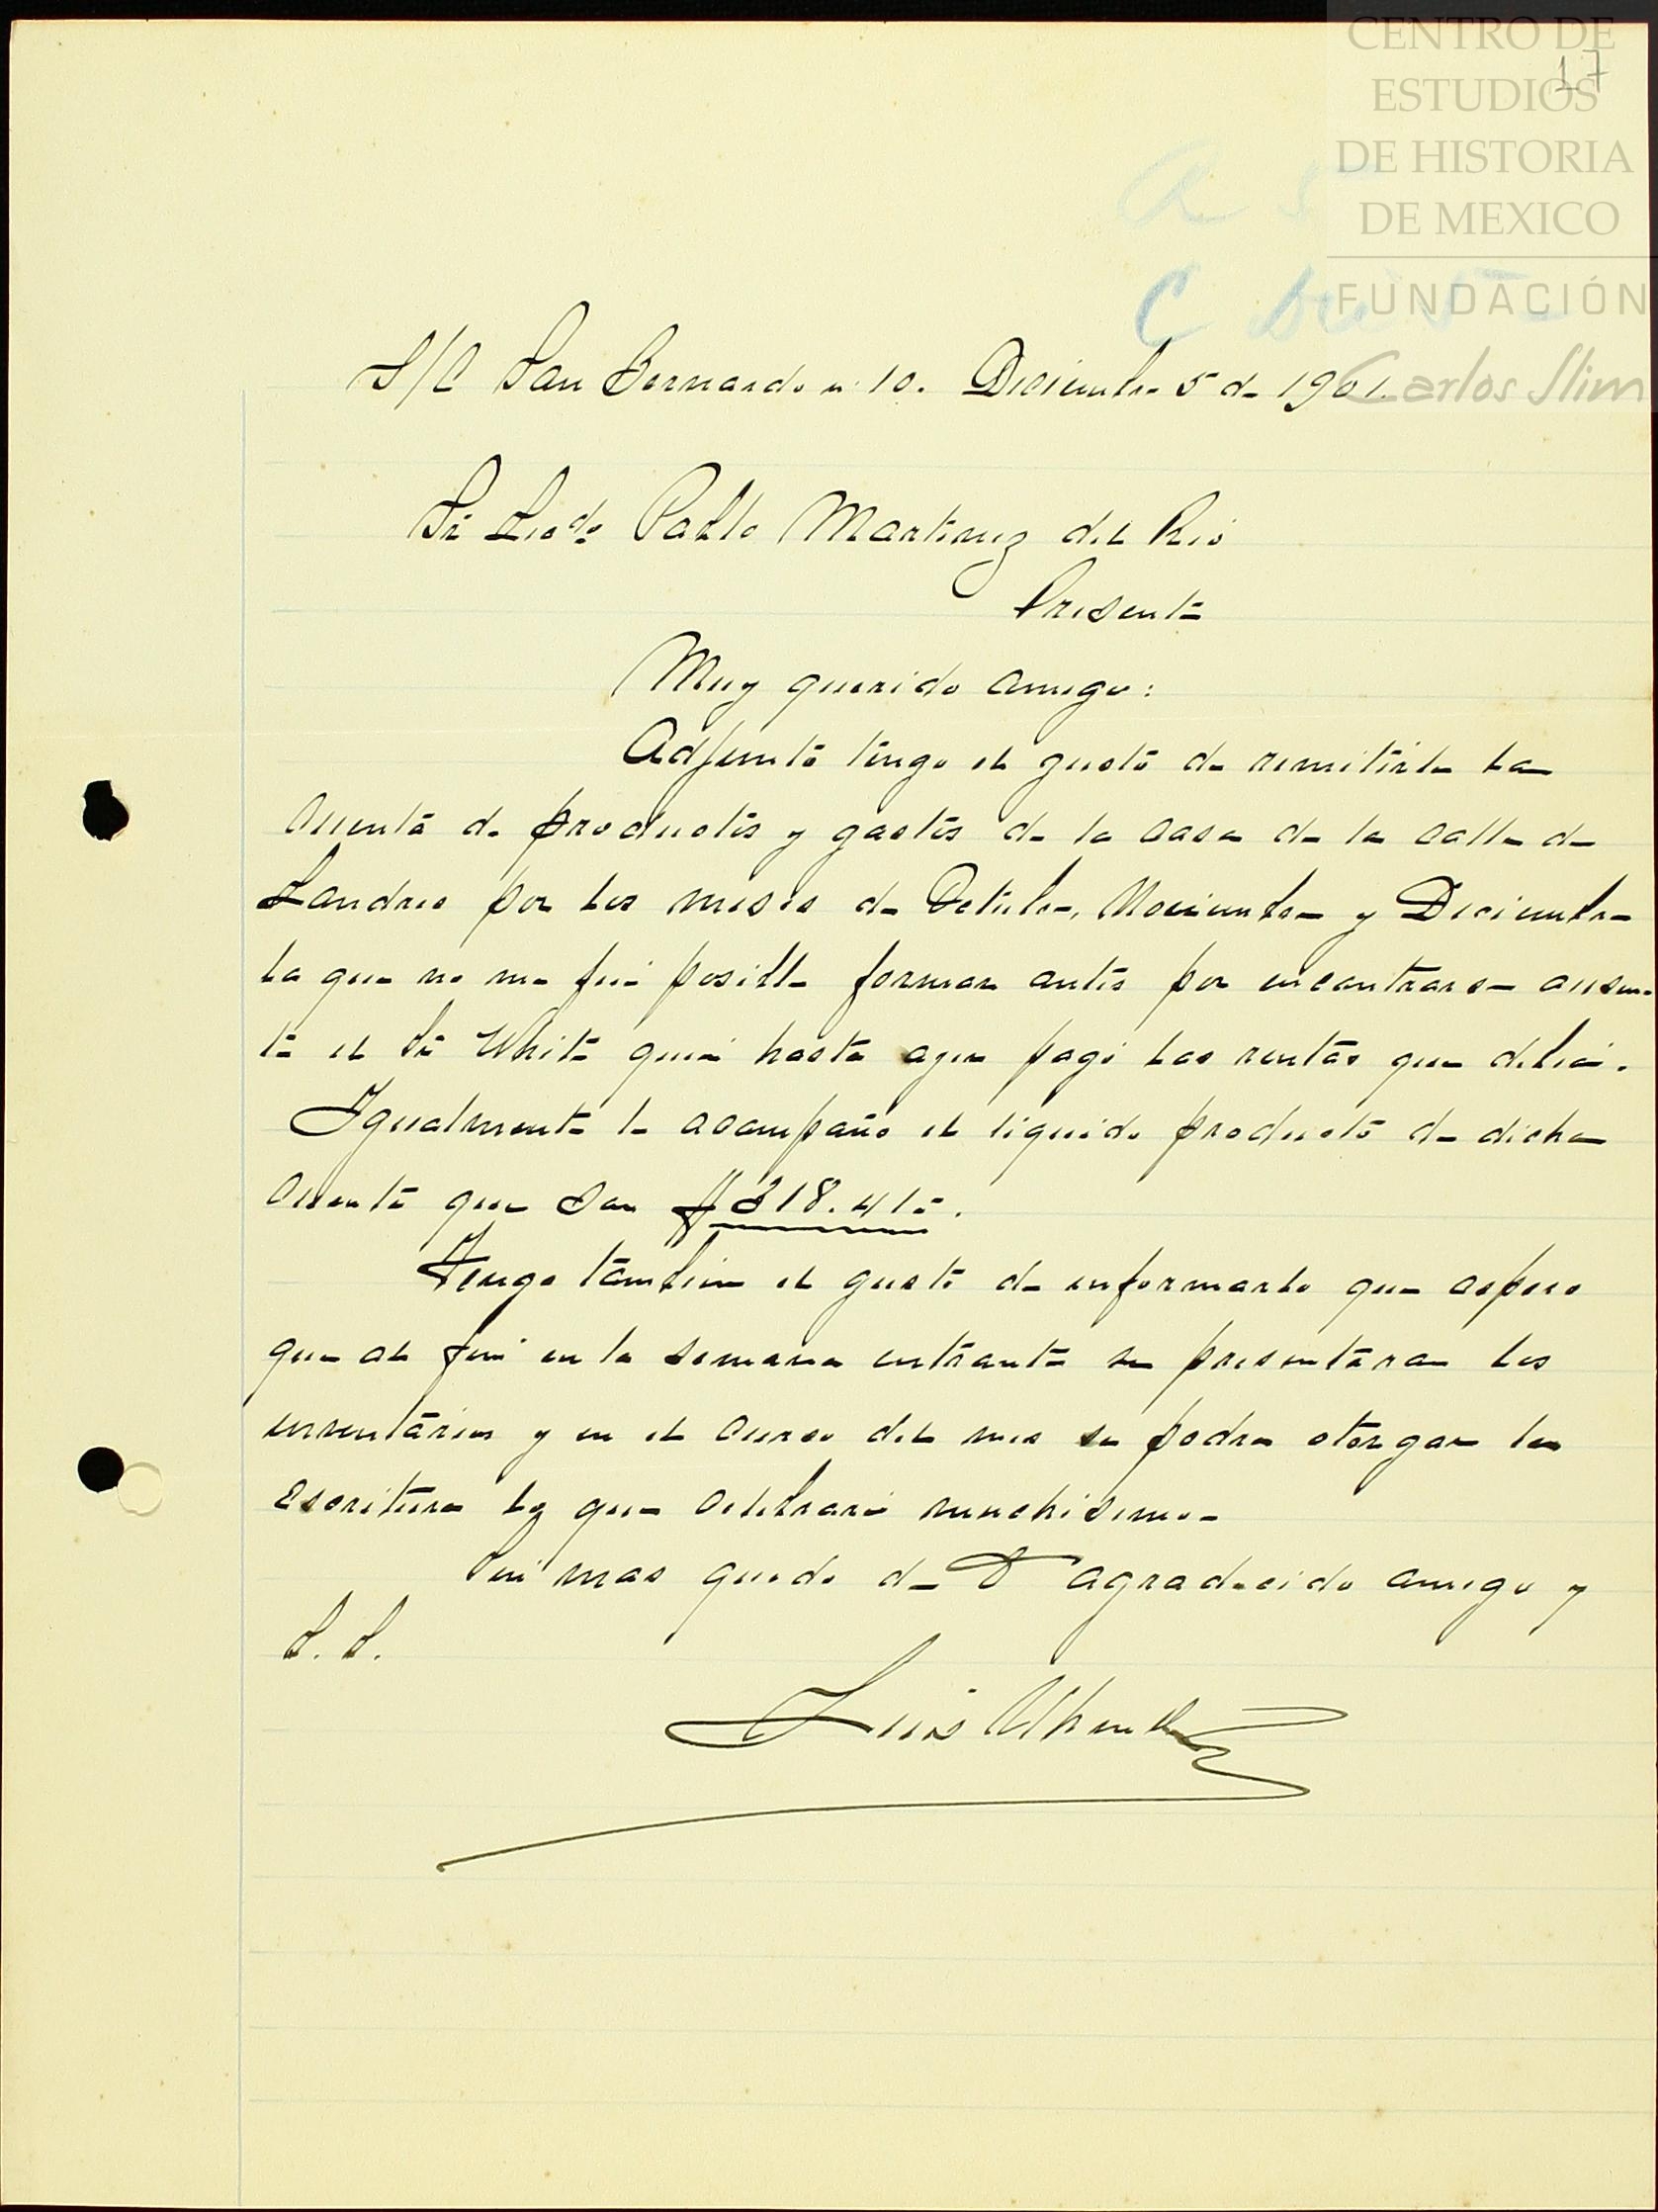 CENTRO DE
ESTUDIOS
DE HISTORIA
DE MEXICO
FUNDACIÓN
Carlos Slim
17
S/C San Bernardo n. 10. Diciembre 5 de 1901.
Sr Licdo Pablo Martinez del Rio
Presente
Muy querido amigo:
Adjunto tengo el gusto de remitirle la
cuenta de productos y gastos de la casa de la calle de
Londres por los meses de Octubre, Noviembre y Diciembre
la que no me fué posible formar antes por encontrarse ausen-
te el Sr White quien hasta ayer pagó las rentas que debia.
Igualmente le acompaño el liquido producto de dicha
cuenta que son $318.41c.
Tengo tambien el gusto de informarle que espero
que al fin en la semana entrante se presentaran los
inventarios y en el curso del mes se podra otorgar la
escritura lo que celebraré muchisimo.
Sin mas quedo de U agradecido amigo y
S. S.
Luis